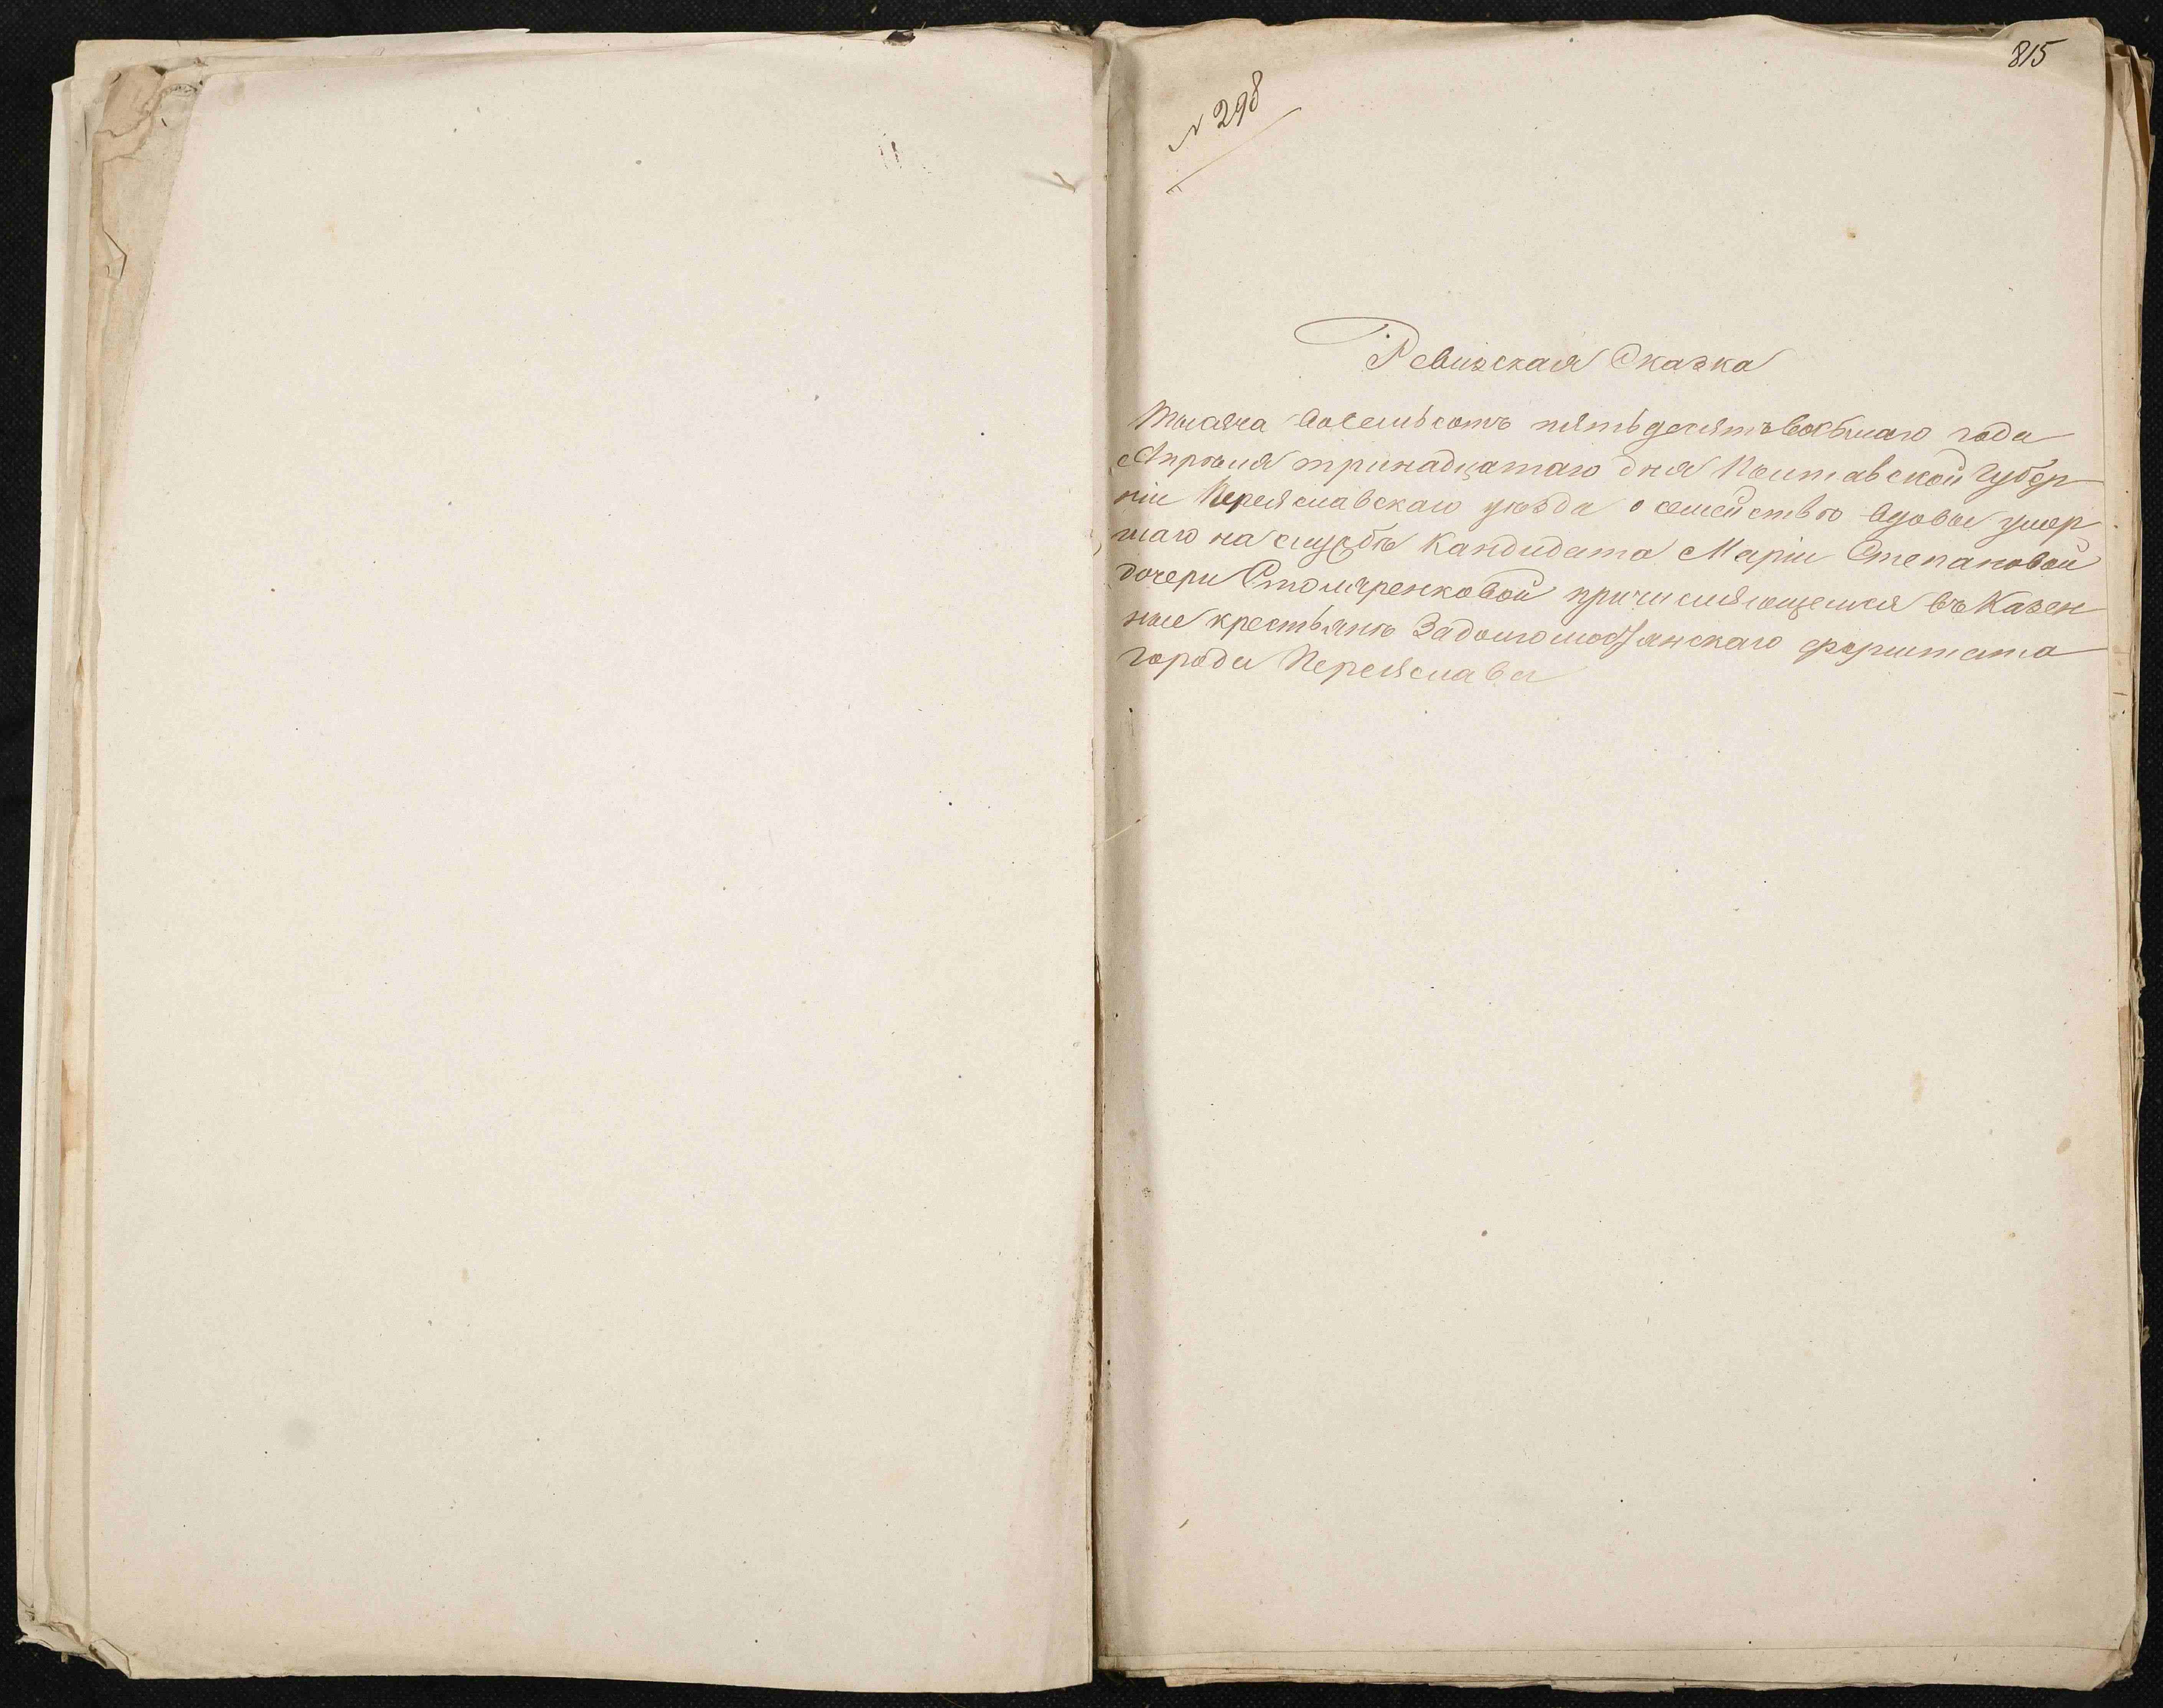 815
№ 298
Ревизская Сказка
Тысяча восемьсотъ пятьдесятъ восьмаго года
Апрѣля тринадцатаго дня Полтавской Губер
ніи Переяславскаго уѣзда о семействѣ вдовы умер
шаго на службѣ Кандидата Маріи Степановой
дочери Столяренковой причисляющемся въ Казен
ные крестьяне форштата
города Переяслава